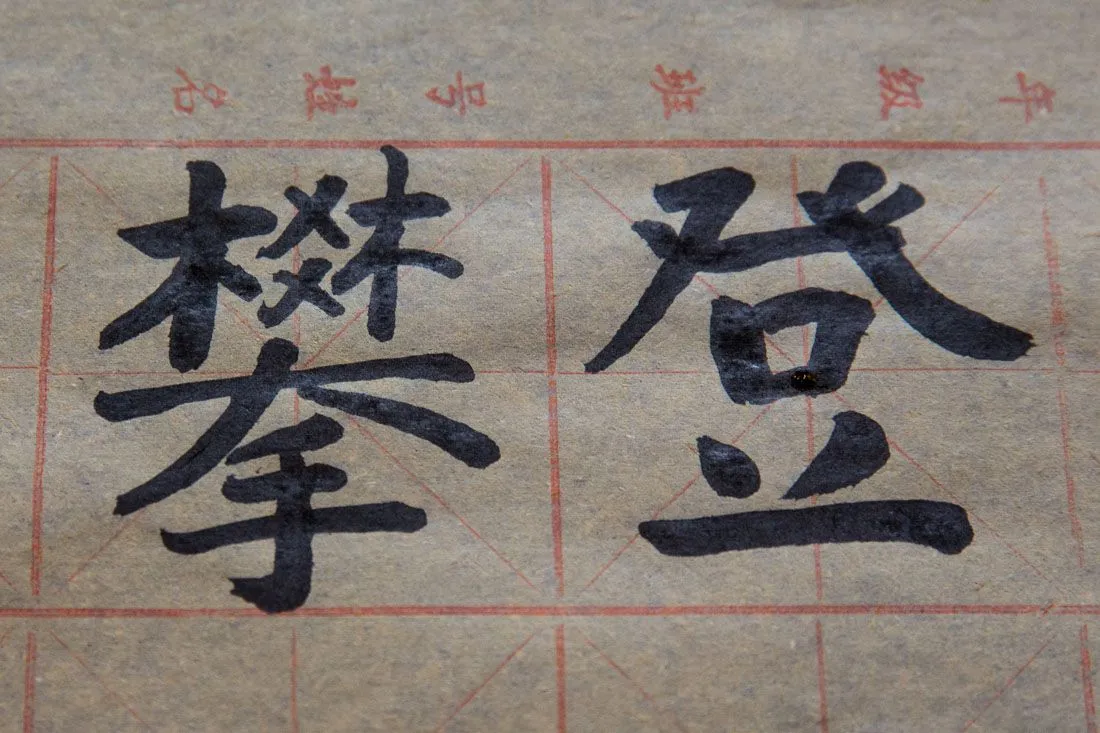 年级 班 号 姓名
攀登